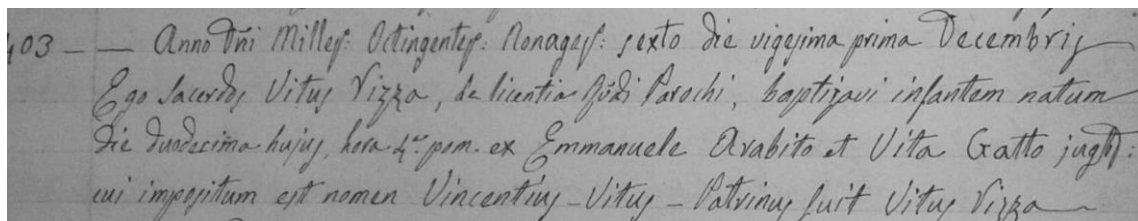 403 - - Anno Dñi Milles: Octingentes: Nonages: sexto die vigesima prima Decembris
Ego Sacerdos Vitus Vizza, de licentia Rñdi Parochi, baptizavi infantem natum
die duodecima hujus, hora 4ª pom. ex Emmanuele Arabito et Vita Gatto jugtb:
cui impositum est nomen Vincentius - Vitus - Patrinus fuit Vitus Vizza